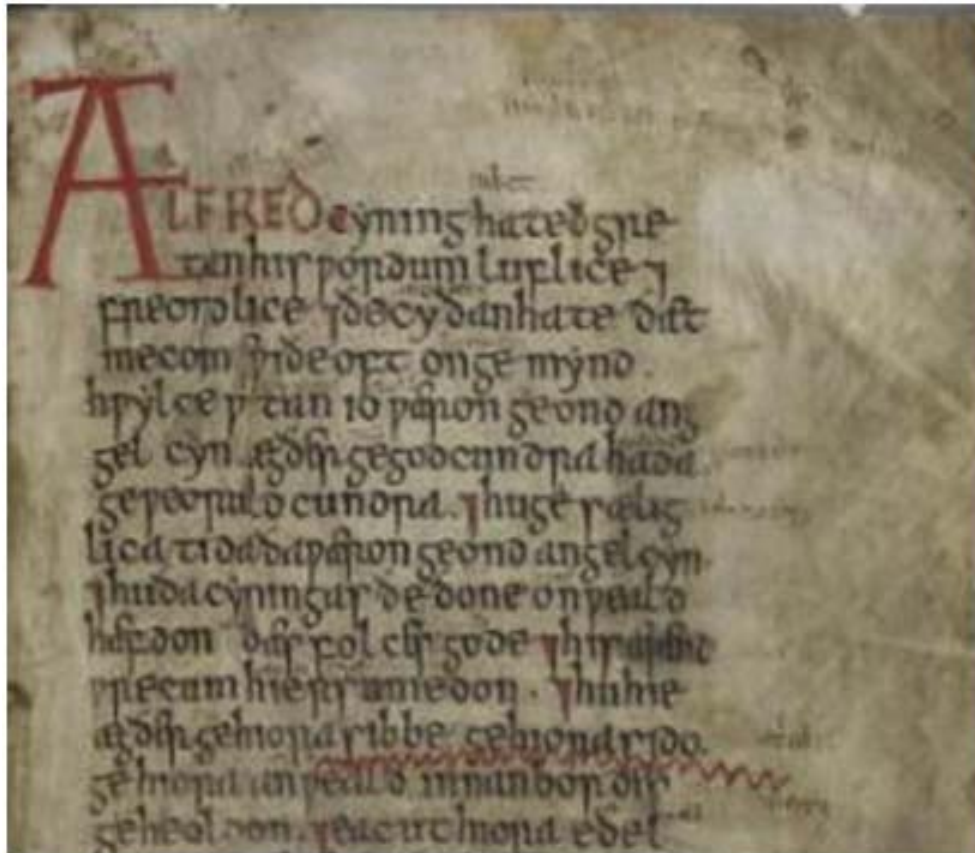 iubet
ALFRED cyning hateð gre
tan his ƿordum luflice ⁊
freondlice ⁊ðe cyðan hate ðæt
me com sƿiðe oft on ge mynd .
hƿylce ƿ tan io ƿæron geond ang
gel cyn . ægðer ge godcundra hada .
ge ƿeoruld cundra . ⁊hu ge sælig
lica tida ða ƿæron geond angel cyn .
⁊hu ða cyningas ðe ðone onƿeald
hæfdon ðæs folces gode ⁊his
ƿrecum hie hsrumedon . ⁊hu hie
ægðer ge hiora sibbe ge hiora sido .
ge hiora anƿeald innan bordes
geheoldon . ⁊eac ut hiora eðel